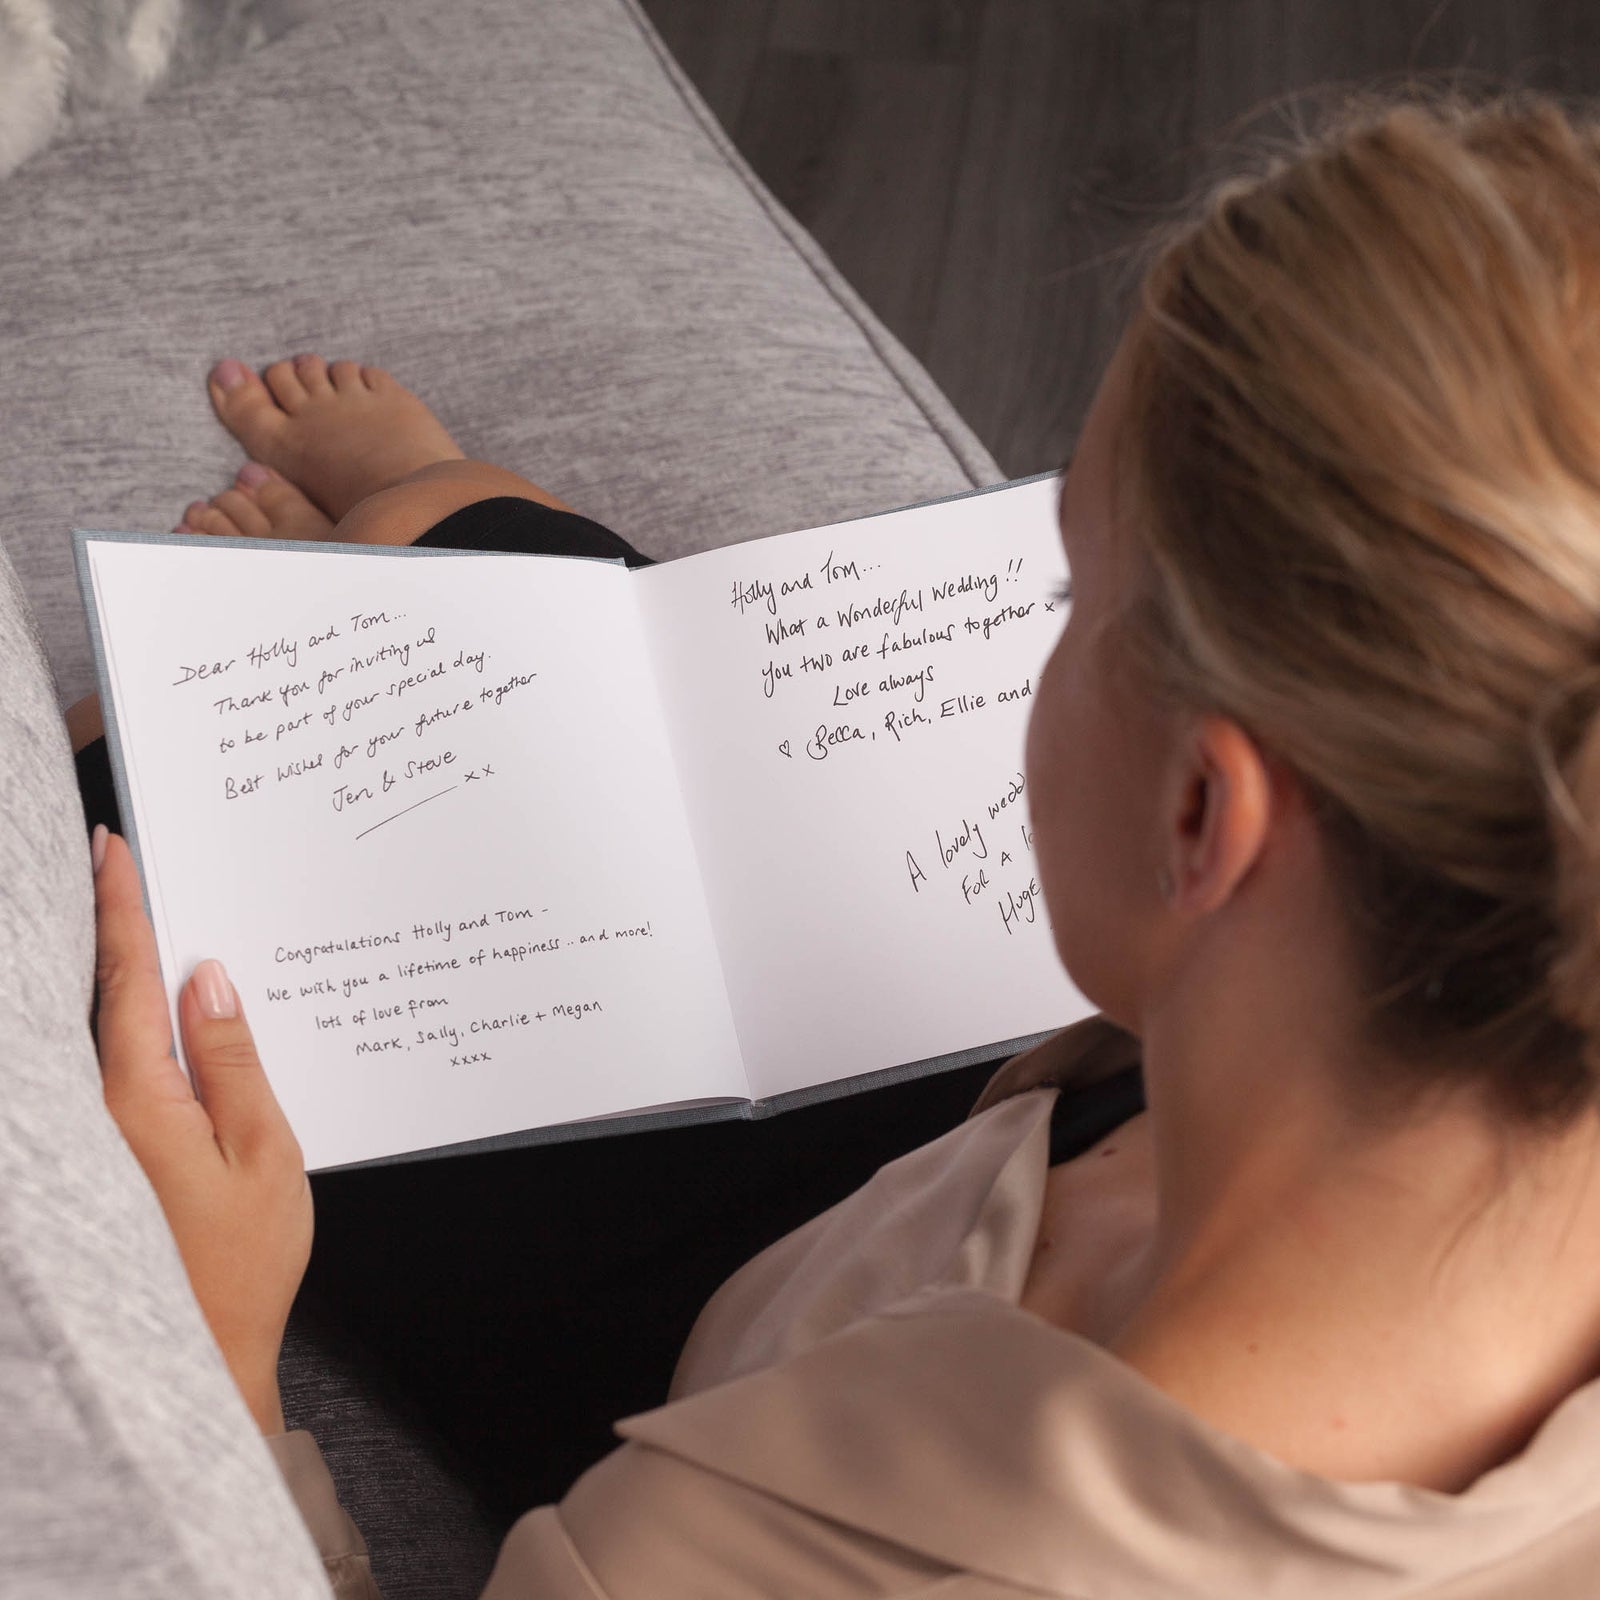 Dear Holly and Tom...
Thank you for inviting us
to be part of your special day.
Best wishes for your future together
Jen & Steve
xx
Congratulations Holly and Tom -
We wish you a lifetime of happiness .. and more!
lots of love from
Mark, Sally, Charlie + Megan
xxxx
Holly and Tom...
What a Wonderful Wedding!!
You two are fabulous together x
Love always
♡ Becca, Rich, Ellie and
A lovely
For A
Huge